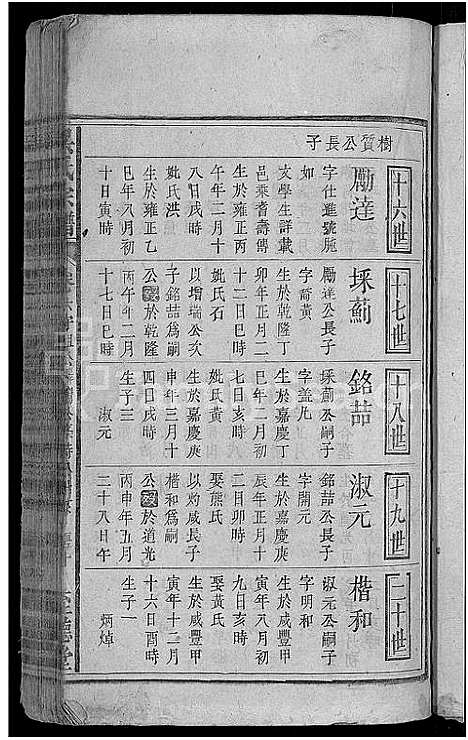 樹質公長子
十六世
勵達
字仕進號胞
如
文學生詳載
邑乘耆壽傳
生於雍正丙
午年二月十
八日戌時
妣氏洪
生於雍正乙
巳年八月初
十日寅時
十七世
埰薊
勵達公長子
字裔黃
生於乾隆丁
卯年正月二
十二日巳時
妣氏石
以增瑞公次
子銘喆為嗣
公歿於乾隆
丙午年二月
十七日巳時
十八世
銘喆
埰薊公嗣子
字蓋凢
生於嘉慶丁
巳年二月初
七日亥時
妣氏黃
生於嘉慶庚
申年三月十
四日戌時
生子三
淑元
十九世
淑元
銘喆公長子
字開元
生於嘉慶庚
辰年正月十
二日卯時
娶熊氏
以灼咸長子
楷和為嗣
公歿於道光
丙申年五月
二十八日午
二十世
楷和
淑元公嗣子
字明和
生於咸豐甲
寅年八月初
九日亥時
娶黃氏
生於咸豐甲
寅年十二月
十六日酉時
生子一
炳焯